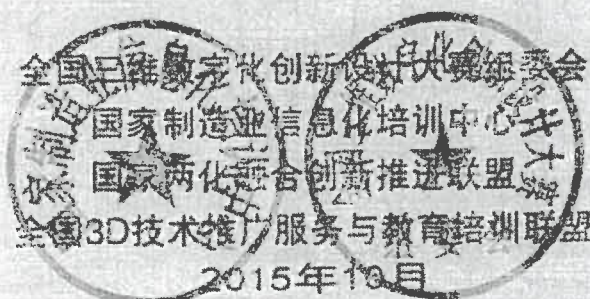 全国三维数字化创新设计大赛组委会
国家制造业信息化培训中心
国家两化融合创新推进联盟
全国3D技术推广服务与教育培训联盟
2015年10月